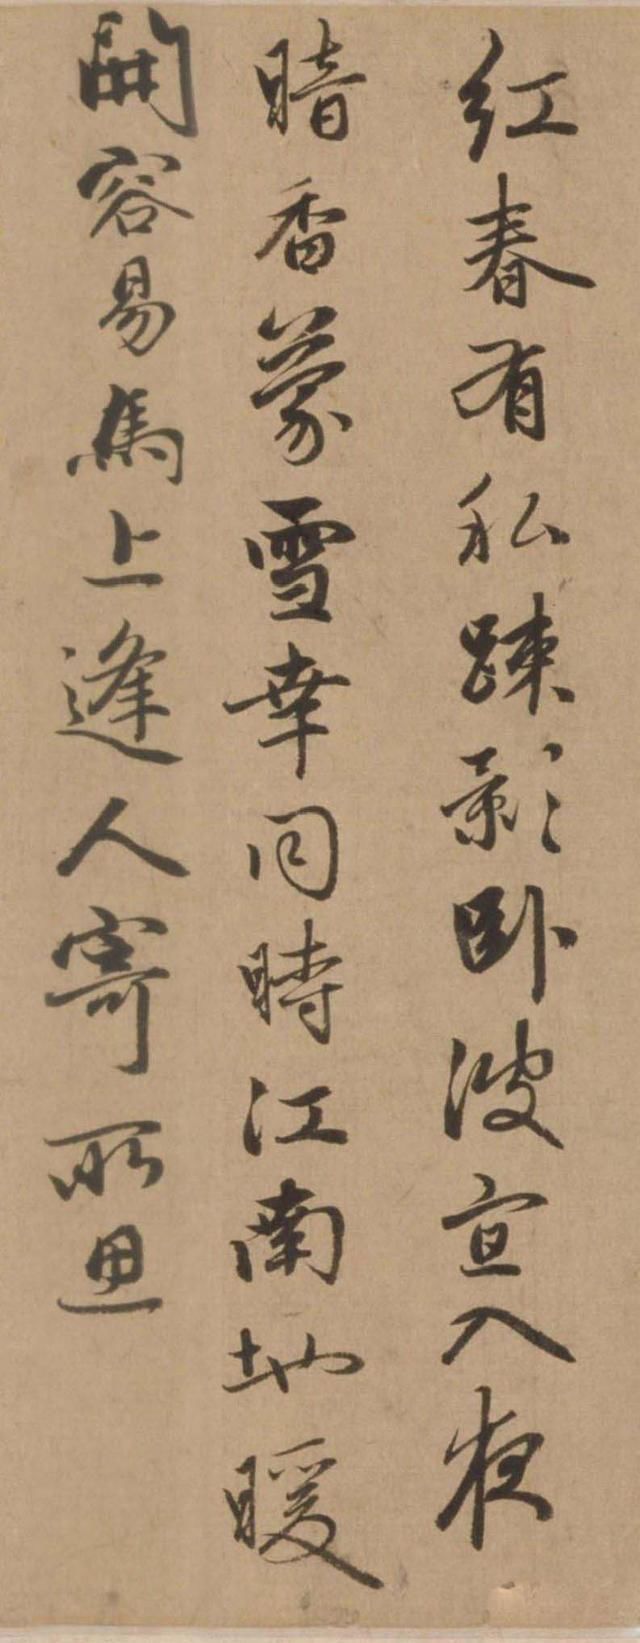 红春有私踈影卧波宜入夜
暗香蒙雪幸同時江南地暖
開容易馬上逢人寄所思